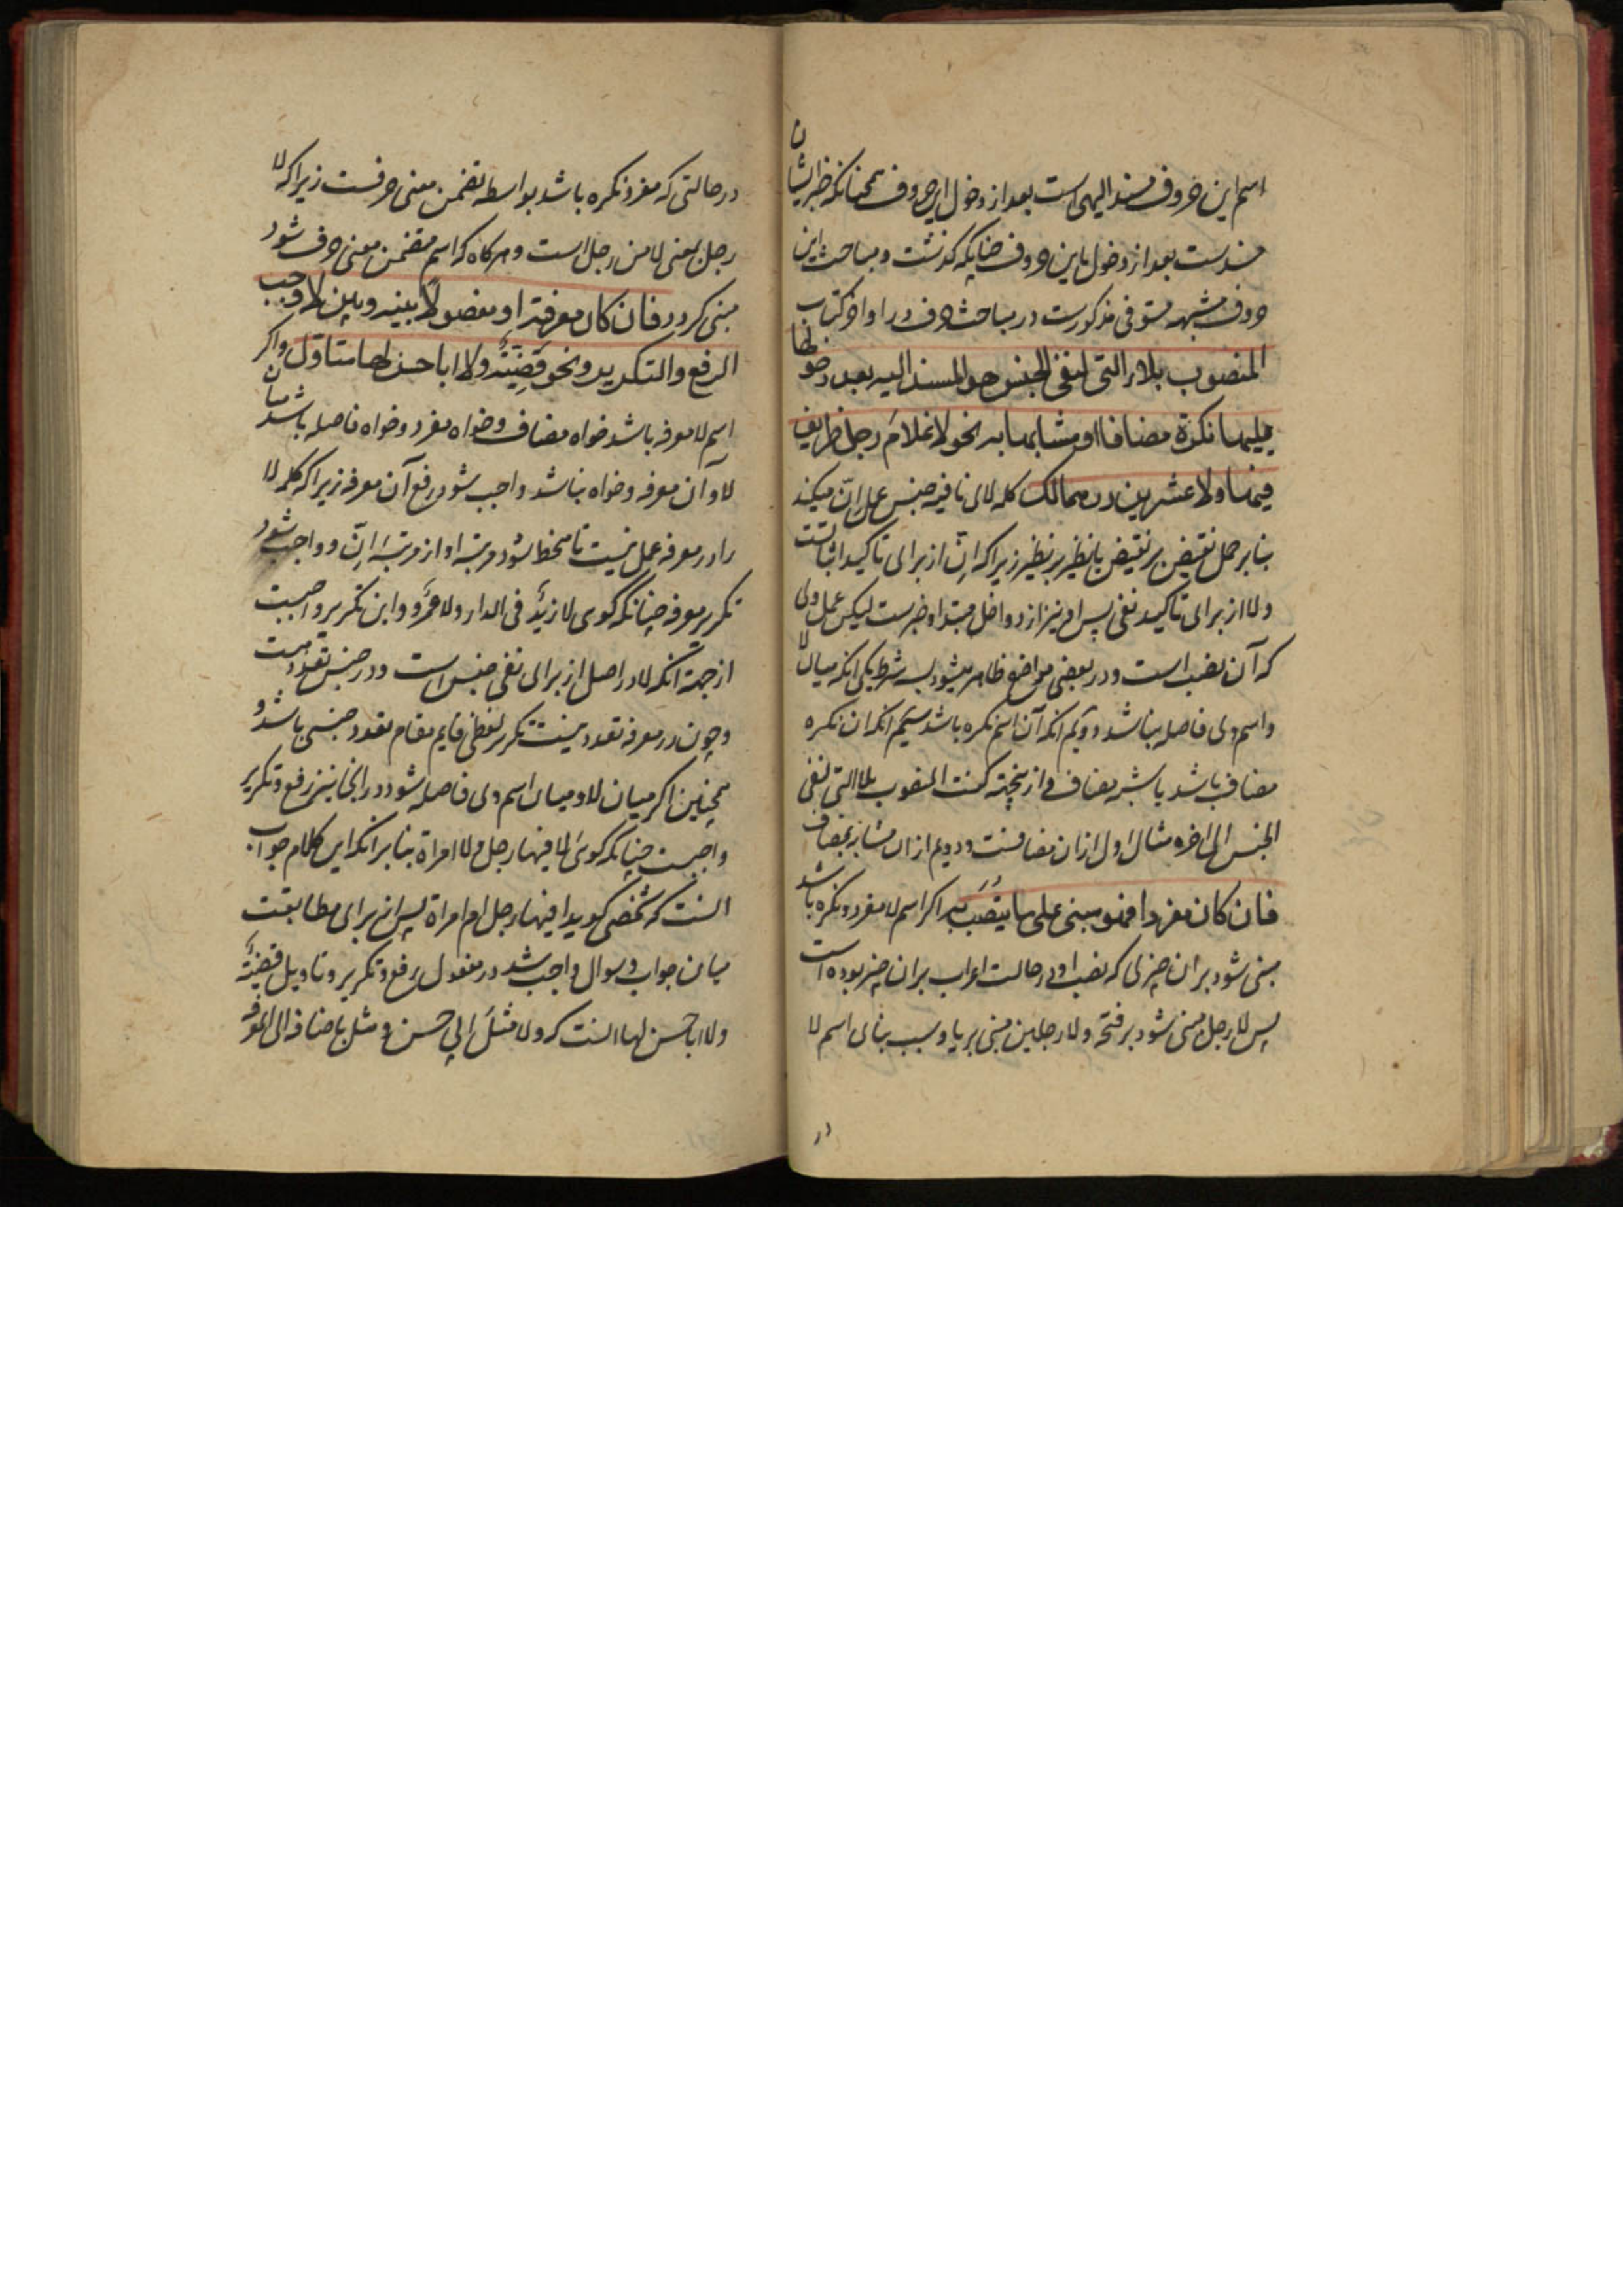 اسم این حروف مسند الیهی است بعد از دخول این حروف همچنانکه خبر ایشان
مسندست بعد از دخول این حروف چنانکه گذشت و مباحث این
حروف مشبهه مستوفی مذکورست در مباحث حرف در اواخر کتاب
المنصوب بلاء التی لنفی الجنس هو المسند الیه بعد دخولها
یلیها نکرة مضافا او مشابها به نحو لا غلام رجل ظریف
فیها ولا عشرین درهما لک کلمه لای نافیه جنس عمل اِنّ میکند
بنابر حمل نقیض بر نقیض یا نظیر بر نظیر زیرا که اِنّ از برای تاکید اثباتست
و لا از برای تاکید نفی پس او نیز از دواخل مبتدا و خبرست لیکن عمل وی
که آن نصب است و در بعضی مواضع ظاهر میشود بسه شرط یکی انکه میان لا
و اسم وی فاصله نباشد دویم انکه آن اسم نکره باشد سیم انکه ان نکره
مضاف باشد یا شبه مضاف و از ینجهته گفت المنصوب بلا التی لنفی
الجنس الی اخره مثال اول ازان مضافست و دویم از ان مشابه بمضاف
فان کان مفردا فهو مبنی علی ما ینصب به اکر اسم لا مفرد و نکره باشد
مبنی شود بر ان چیزی که نصب او در حالت اعراب بران چیز بوده است
پس لا رجل مبنی شود بر فتحه ولا رجلین مبنی بر یا و سبب بنای اسم لا
در
در حالتی که مفرد نکره باشد بواسطه تضمن معنی حرفست زیرا که لا
رجل بمعنی لا من رجل است و هرکاه که اسم متضمن معنی حرف شود
مبنی کردد فان کان معرفة او مفصولا بینه و بین لا وجب
الرفع والتکریر ونحو قضیّةً ولا ابا حسن لها متاوّل واکر
اسم لا معرفه باشد خواه مضاف و خواه مفرد و خواه فاصله باشد میان
لا و آن معرفه و خواه نباشد واجب شود رفع آن معرفه زیرا که کلمه لا
را در معرفه عمل نیست تا منحط شود مرتبه او از مرتبه اِنّ و واجب شود
تکریر معرفه چنانکه گوی لا زیدٌ فی الدار ولا عمرٌو و این تکریر واجبست
از جهة انکه لا در اصل از برای نفی جنس است و در جنس تعدد هست
و چون در معرفه تعدد نیست تکریر لفظی قایم مقام تعدد جنسی باشد و
همچنین اکر میان لا و میان اسم وی فاصله شود در انجا نیز رفع و تکریر
واجبست چنانکه گوی لا فیها رجل ولا امراة بنابر انکه این کلام جواب
انست که شخصی کوید ا فیها رجل ام امراة پس از برای مطابقت
میان جواب و سوال واجب شد در مفعول رفع و تکریر و تاویل قضیّةً
ولا ابا حسن لها انست که ولا مثلَ ابی حسن و مثل باضافه الی المعرفه